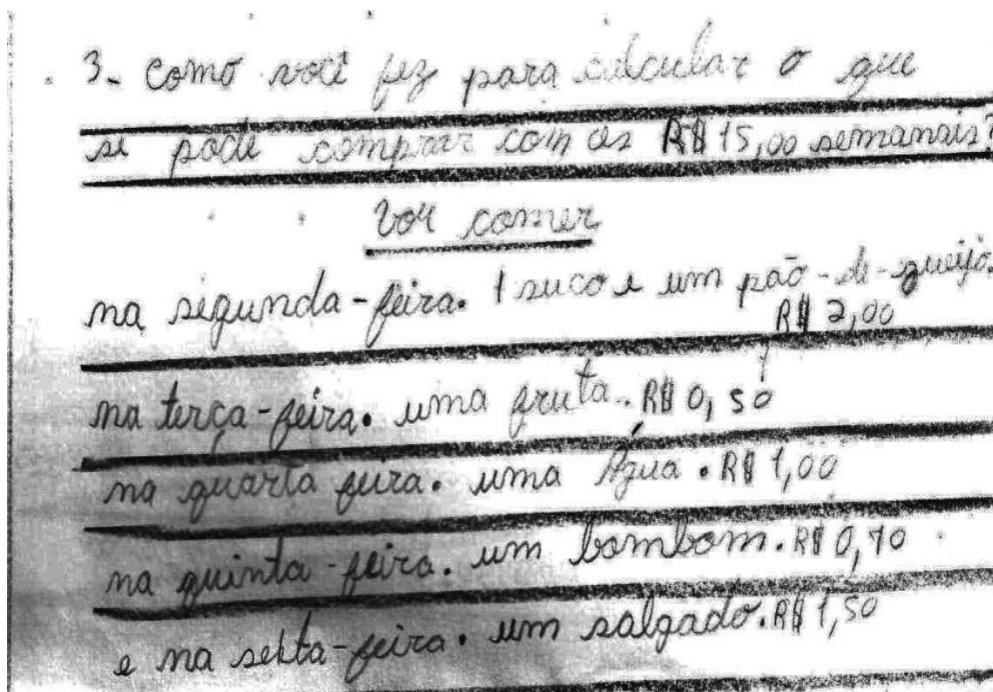 3- Como você fez para calcular o que
se pode comprar com os R$ 15,00 semanais?
Vou comer
na segunda-feira. 1 suco e um pão-de-queijo.
R$ 2,00
na terça-feira. uma fruta. R$ 0,50
na quarta feira. uma Água. R$ 1,00
na quinta-feira. um bombom. R$ 0,70
e na sexta-feira. um salgado. R$ 1,50